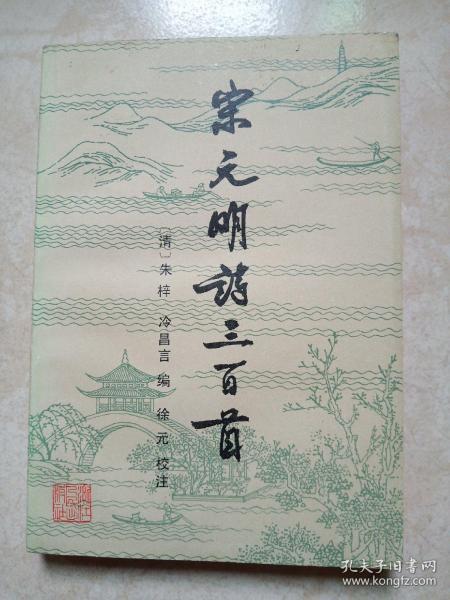 宋元明诗三百首
清〕朱梓 冷昌言 编 徐元 校注
孔夫子旧书网
www.kongfz.com